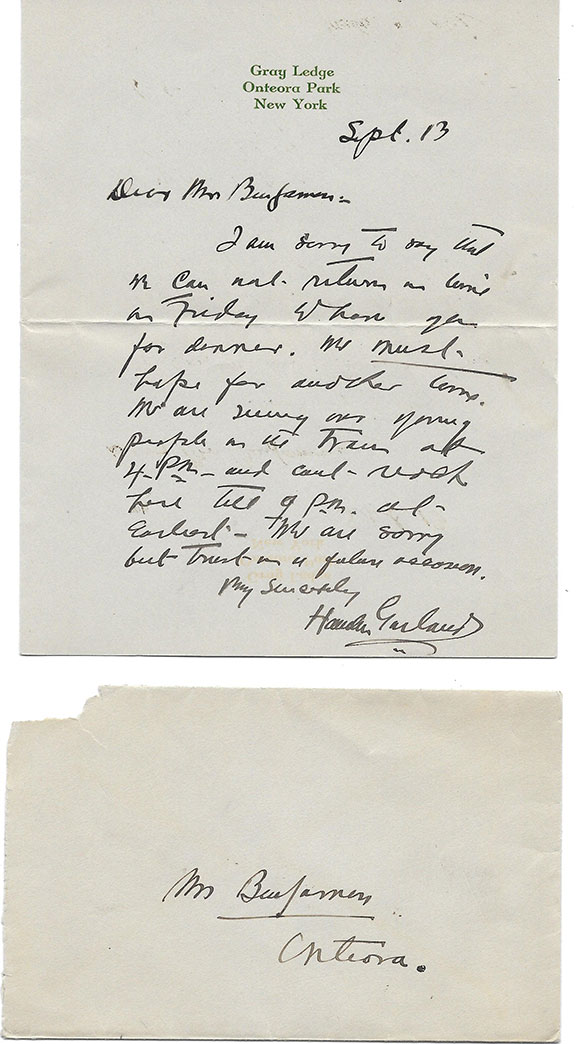 Gray Ledge
Onteora Park
New York
Sept. 13
Dear Mrs Benjamen:-
I am sorry to say that
we can not return in time
on Friday to have you
for dinner. We must
hope for another time.
We are seeing our young
people on the train at
4 P.M. and can't reach
here till 9 P.M. at
Earliest - We are sorry
but trust in a future occasion.
Very Sincerely
Hamlin Garland
Mrs Benjamen
Onteora.